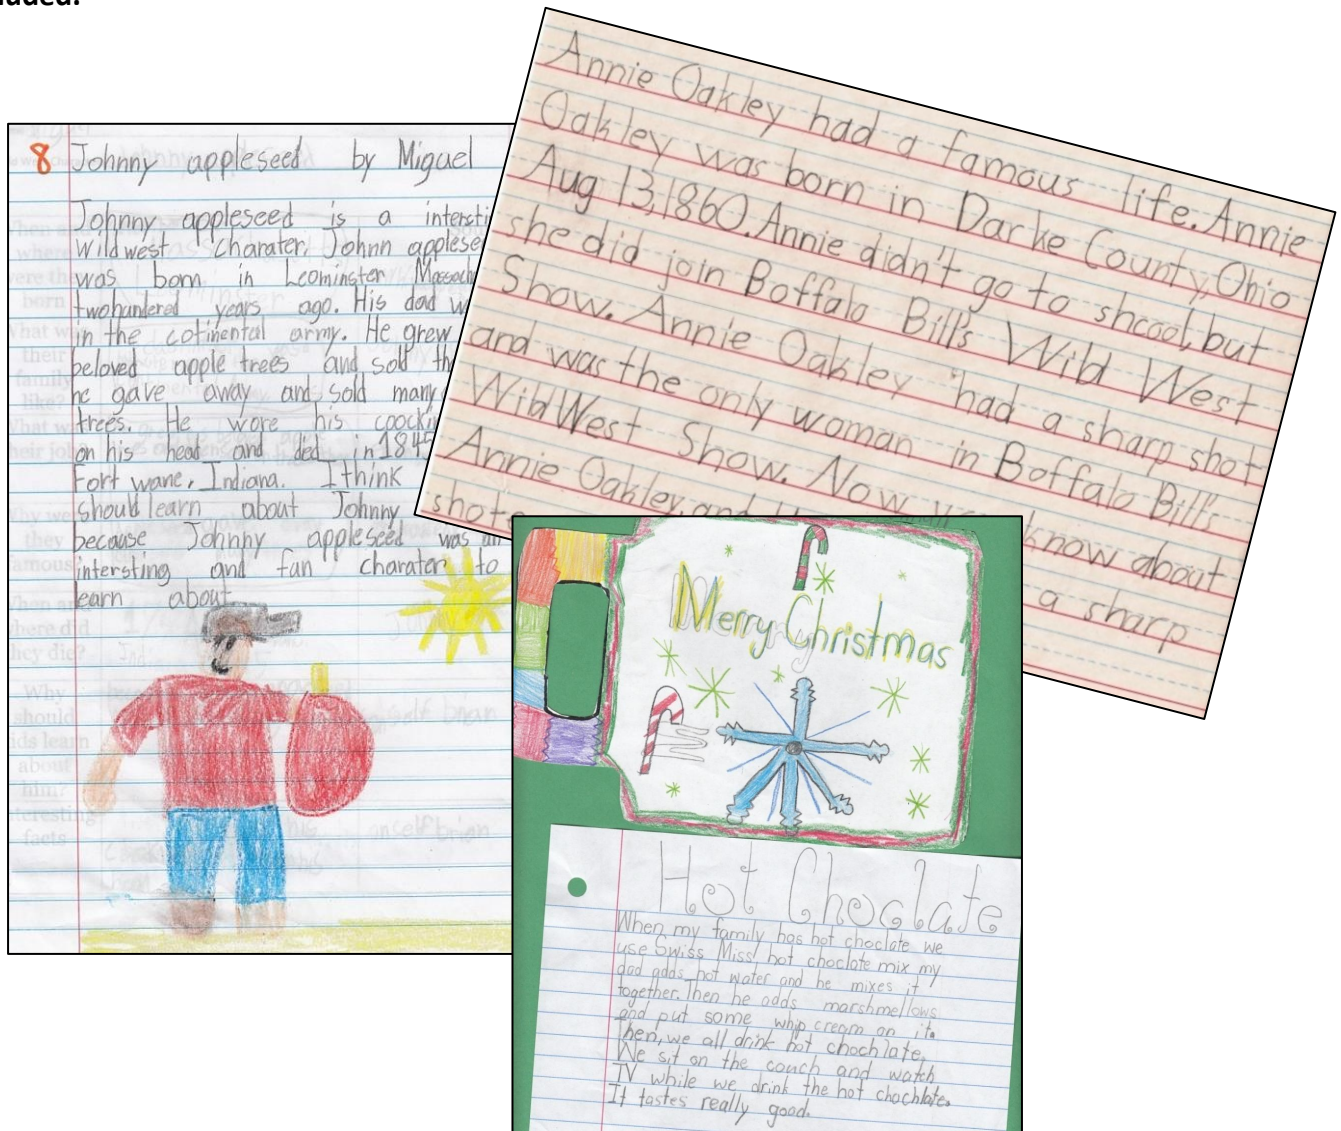 8 Johnny appleseed by Miguel
Johnny appleseed is a intersti
Wild west charater. Johnn applese
was born in Leominster Massach
twohundered years ago. His dad w
in the cotinental army. He grew
beloved apple trees and sold th
he gave away and sold many
trees. He wore his coocki
on his head and ded in 1845
Fort wane, Indiana. I think
should learn about Johnny
because Johnny appleseed was an
intersting and fan charater to
learn about
Annie Oakley had a famous life. Annie
Oakley was born in Darke County, Ohio
Aug 13, 1860. Annie didn't go to shcool, but
she did join Boffalo Bill's Wild West
Show. Annie Oakley had a sharp shot
and was the only woman in Boffalo Bill's
Wild West Show. Now you know about
Annie Oakley, and a sharp
shot
Merry Christmas
Hot Choclate
When my family has hot choclate we
use Swiss Miss hot choclate mix my
dad adds hot water and he mixes it
together. Then he adds marshmellows
and put some whip cream on it.
Then, we all drink hot chochlate,
We sit on the couch and watch
TV while we drink the hot chochlate.
It tastes really good.